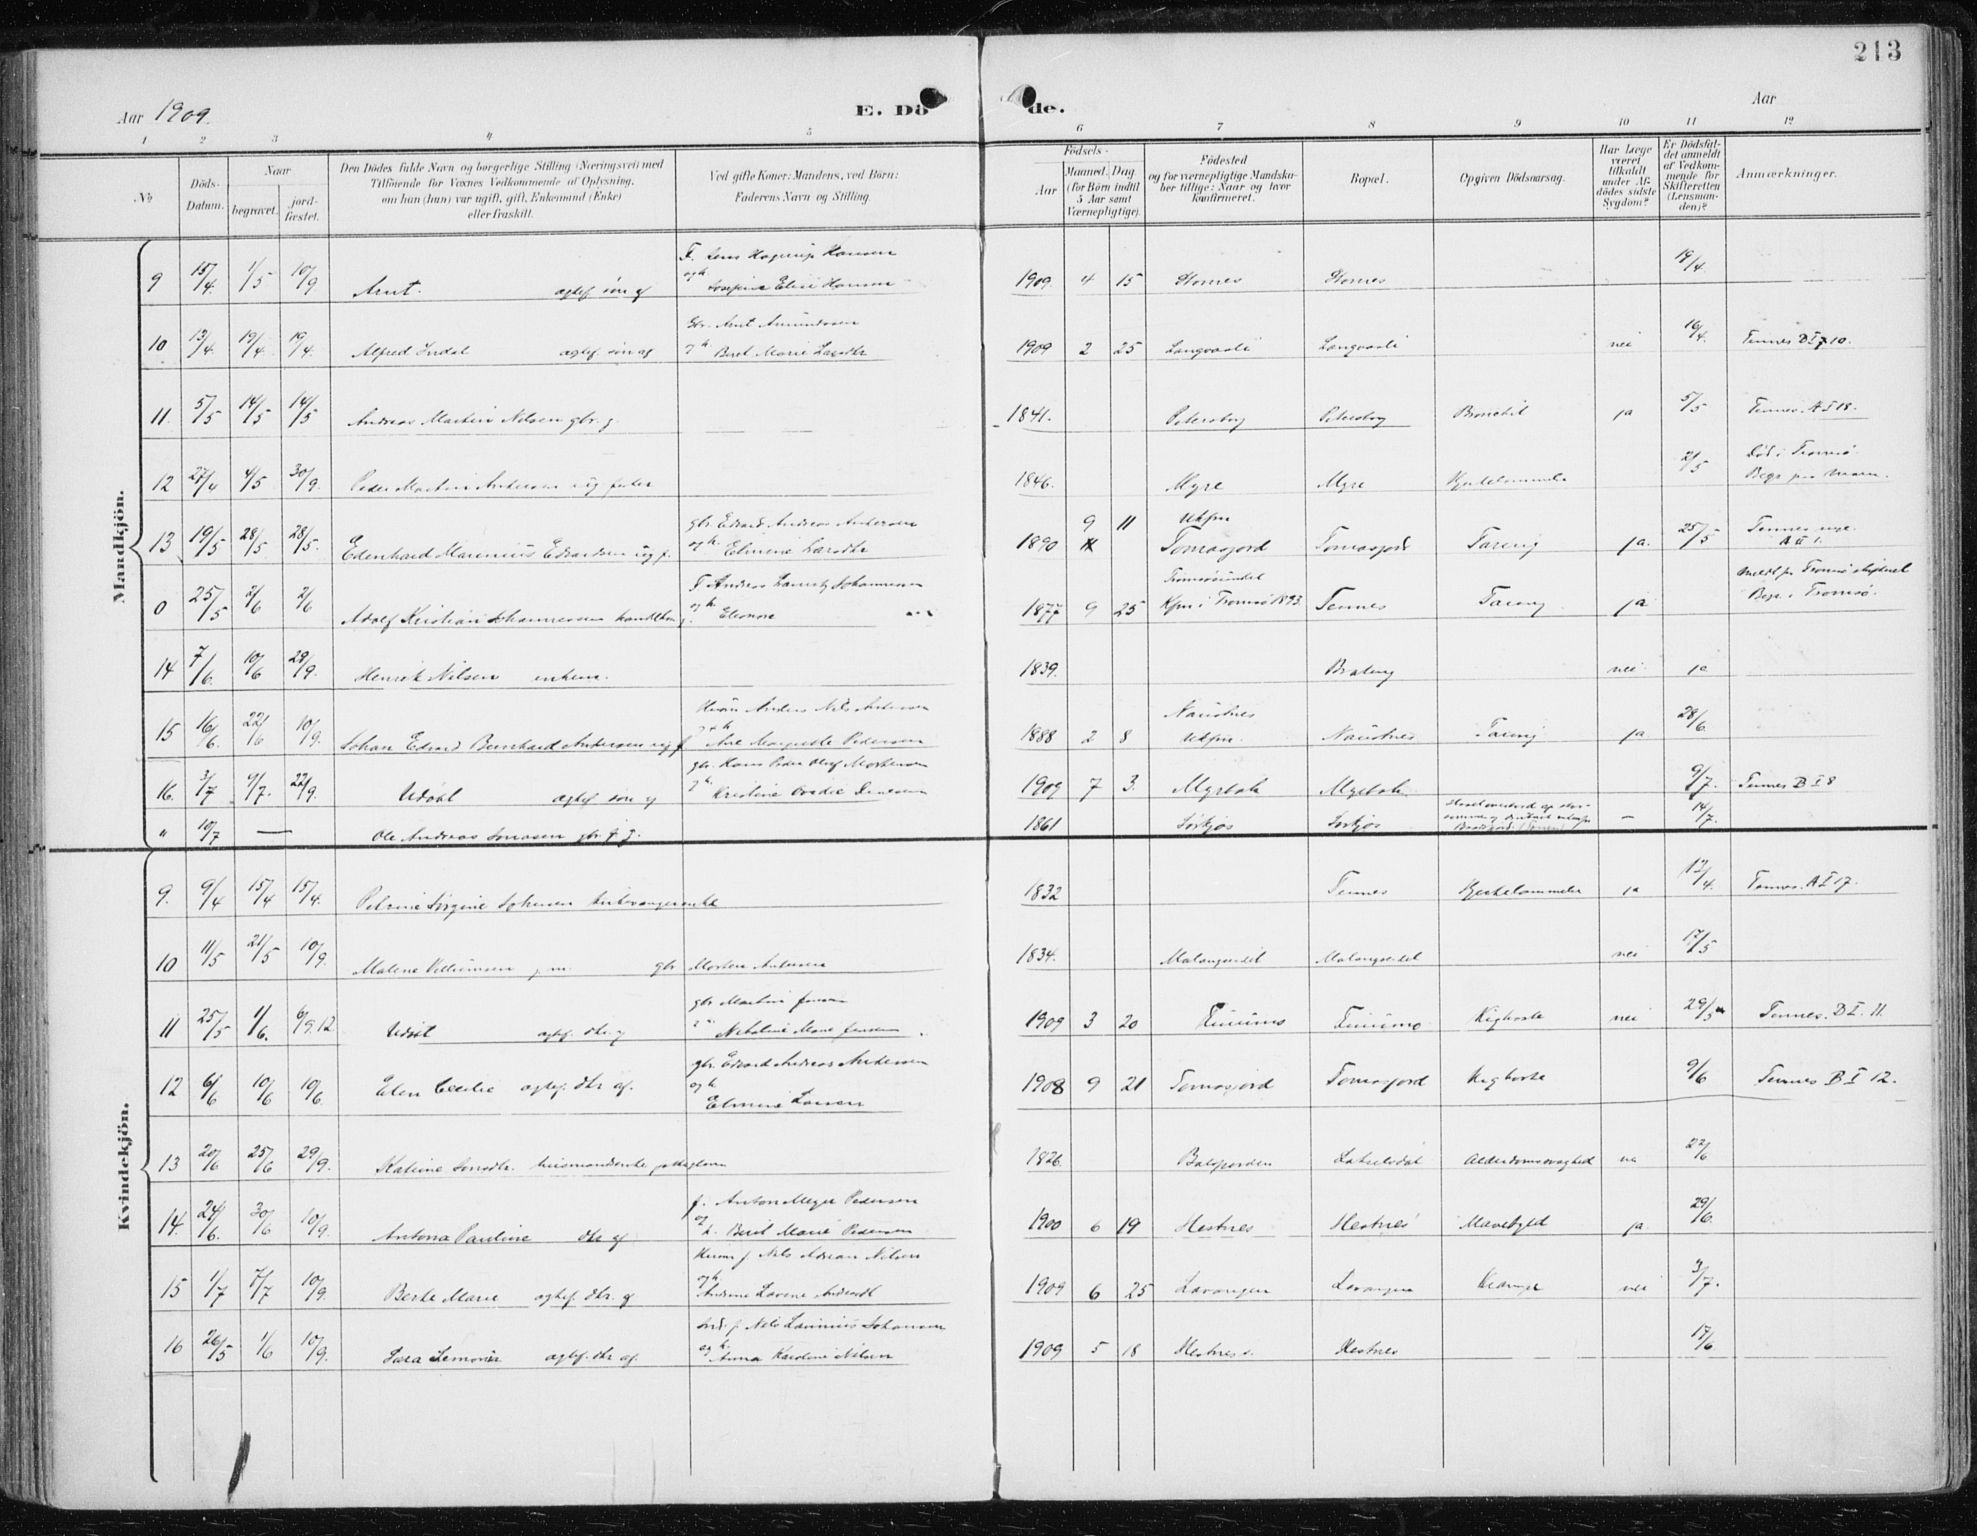 213
Aar 1909.
E. Dö de.
Aar
1 2 3 4 5 6 7 8 9 10 11 12
No
Döds-Datum.
Naar
begravet.
jord-fæstet.
Den Dödes fulde Navn og borgerlige Stilling (Næringsvei) med
Tilföiende for Voxnes Vedkommende af Oplysning,
om han (hun) var ugift, gift, Enkemand (Enke)
eller fraskilt.
Ved gifte Koner: Mandens, ved Börn:
Faderens Navn og Stilling
Födsels-
Aar
Maaned. Dag
(for Börn indtil
5 Aar samt
Værnepligtige).
Födested
og for værnepligtige Mandska-
ber tillige: Naar og hvor
konfirmeret.
Bopæl.
Opgiven Dödsaarsag.
Har Læge
været
tilkaldt
under Af-
dödes sidste
Sygdom?
Er Dödsfal-
det anmeldt
af Vedkom-
mende for
Skifteretten
(Lensman-
den)?
Anmærkninger.
Mandkjön.
9 15/4 1/5 10/9 Arnt. ægtef. søn af F. Jens Hagerup Hansen og h. Josefine Elise Hansen 1909 4 15 Stornes Stornes 19/4
10 13/4 19/4 19/4 Alfred Indal ægtef. søn af Gbr. Arnt Amundsen og h. Berit Marie Larsdtr 1909 2 25 Langvasli Langvasli nei 16/4 Tennes B I 10.
11. 5/5 14/5 14/5 Andreas Martin Nilsen gbr. g. 1841. Petersborg Petersborg Bronchit ja 5/5 Tennes. A I 18.
12 27/4 4/5 30/9 Peder Martin Andersen ug fisker 1846. Myre Myre Hjertelammelse 2/5 Død i Tromsø. Begr paa
13 19/5 28/5 28/5. Edenhard Marenius Edvardsen ug f. gbr. Edvard Andreas Andersen og h. Elmine Larsdtr 1890 9 11 Ukfm Tomasjord Tomasjord Tæring ja. 25/5 Tennes nye. A II 1.
0 25/5 2/6 2/6 Adolf Kristian Johannessen F Andreas Lauritz Johannesen og h. Eleonore 1877 9 25 Tromsøsundet Kfm i Tromsø 1893. Tennes Tæring ja Meldt fra Tromsø Begr. i Tromsø.
14 7/6. 10/6 29/9. Henrik Nilsen enkem. 1839. nei ja
15 16/6. 22/6 10/9. Johan Edvard Bernhard Andersen ug f Husm Anders Nils Andersen og h Ane Margrethe Pedersen 1888 2 8 Naustnes Ukfm. Naustnes Tæring ja 28/6.
16. 3/7 9/7. 22/9. Udøbt ægtef søn af gbr. Hans Peder Oluf Mortensen og h. Kristine 1909 7 3. Myrbak Myrbak 9/7. Tennes B I 8
" 10/7 — Ole Andreas Jonassen gbr. 1861 Sørkjos Sørkjos — 14/7.
Kvindekjön.
9. 9/4 15/4 15/4. Petrine Jørgine Johnsen 1832 Tennes Hjertelammelse ja 13/4. Tennes. A I 17.
10 11/5 21/5 10/9. Malene Villumsen gbr Morten Andersen 1834. Malangseidet Malangseidet nei 17/5
11 25/5 1/6. 6/9.12. Udøbt ægtef. dtr. af gbr Martin Jensen Nikoline Marie Jensen 1909 3 20 Kighoste nei 29/5 Tennes. B I. 11.
12 6/6 10/6 10/6. Elen Cecilie ægtef. dtr af. gbr. Edvard Andreas Andersen og h Elmine Larsen 1908 9 21 Tomasjord Tomasjord Kighoste 9/6 Tennes B I 12.
13 20/6 25/6 29/9. Katrine Jonsdtr. husmandsenke 1826 Balsfjorden Alderdomssvaghed 22/6
14. 24/6. 30/6 10/9. Antona Pauline dtr af f. Anton Meyer Pedersen og h. Berit Marie Pedersen 1900 6 19 Hestnes Hestnes Mavebyld ja 29/6.
15 1/7 7/7 10/9. Berte Marie ægtef. dtr. af Husm f Nils Adrian Nilsen og h. Andrine Lovene 1909 6 25 Lavangen Lavangen nei 3/7.
16 26/5 1/6 10/9. Sara Lemone ægtef dtr af. f Nils Laurinius Johansen og h. Anna Karoline Nilsen 1909 5 18 Hestnes. Hestnes 17/6